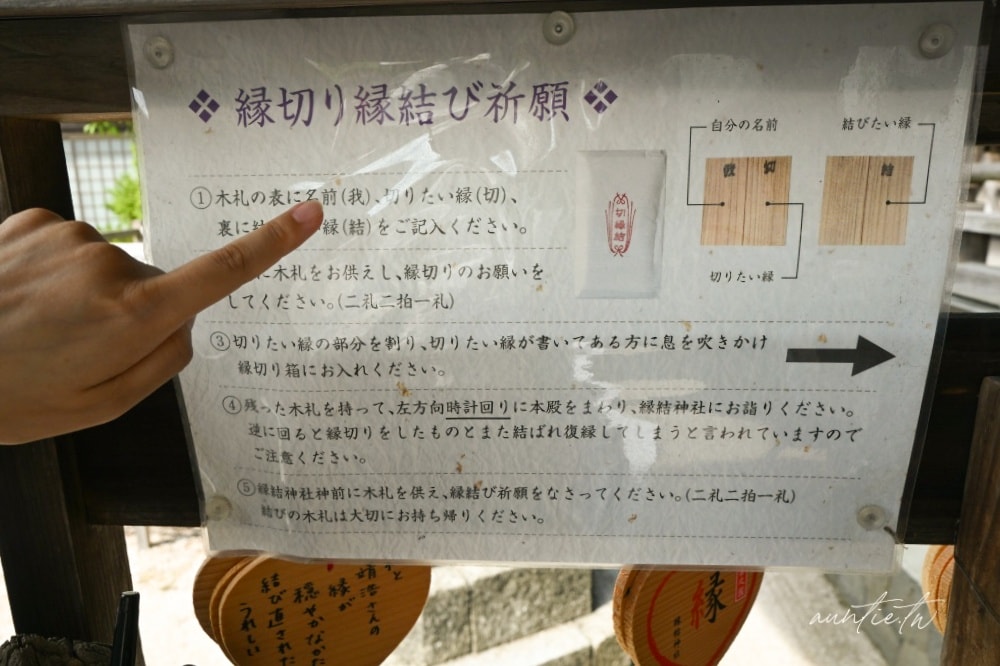 縁切り縁結び祈願
①木札の表に名前(我)、切りたい縁(切)、
裏に結 縁(結)をご記入ください。
に木札をお供えし、縁切りのお願いを
してください。(二礼二拍一礼)
③切りたい縁の部分を割り、切りたい縁が書いてある方に息を吹きかけ
縁切り箱にお入れください。
④残った木札を持って、左方向時計回りに本殿をまわり、縁結神社にお詣りください。
逆に回ると縁切りをしたものとまた結ばれ復縁してしまうと言われていますので
ご注意ください。
⑤縁結神社神前に木札を供え、縁結び祈願をなさってください。(二礼二拍一礼)
結びの木札は大切にお持ち帰りください。
切縁結
自分の名前
我 切
切りたい縁
結びたい縁
結
さんの
縁が
穏やかなかた
結び直された
うれしい
縁
auntie.tw